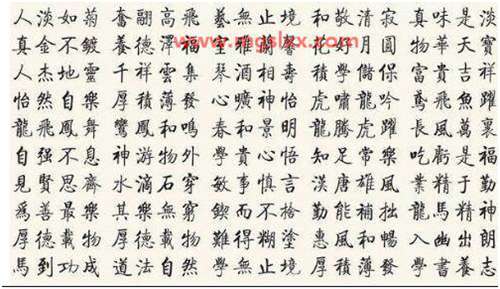 人淡如菊 奮翮高飛 藝無止境 和敬清寂 真味是淡
真金不鍍 養德 福 花好月圓 物華天寶
www.mgslxx.com
人杰地靈 千祥雲集 壽 積學儲 富貴吉祥
怡然自樂 厚積薄發 心曠神怡 虎嘯龍吟 鳶飛魚躍
龍飛鳳舞 鸞鳳和鳴 春和景明 龍騰虎躍 長風萬裏
自强不息 神游物外 學貴心悟 知足常樂 吃虧是福
見賢思齊 水滴石穿 敏事慎言 漢唐雄風 業精于勤
爲善最樂 其樂無窮 鍥而不捨 勤能補拙 龍馬精神
厚德載物 難得糊塗 惠風和暢 入幽出朗
馬到功成 道法自然 學無止境 厚積薄發 學書養志